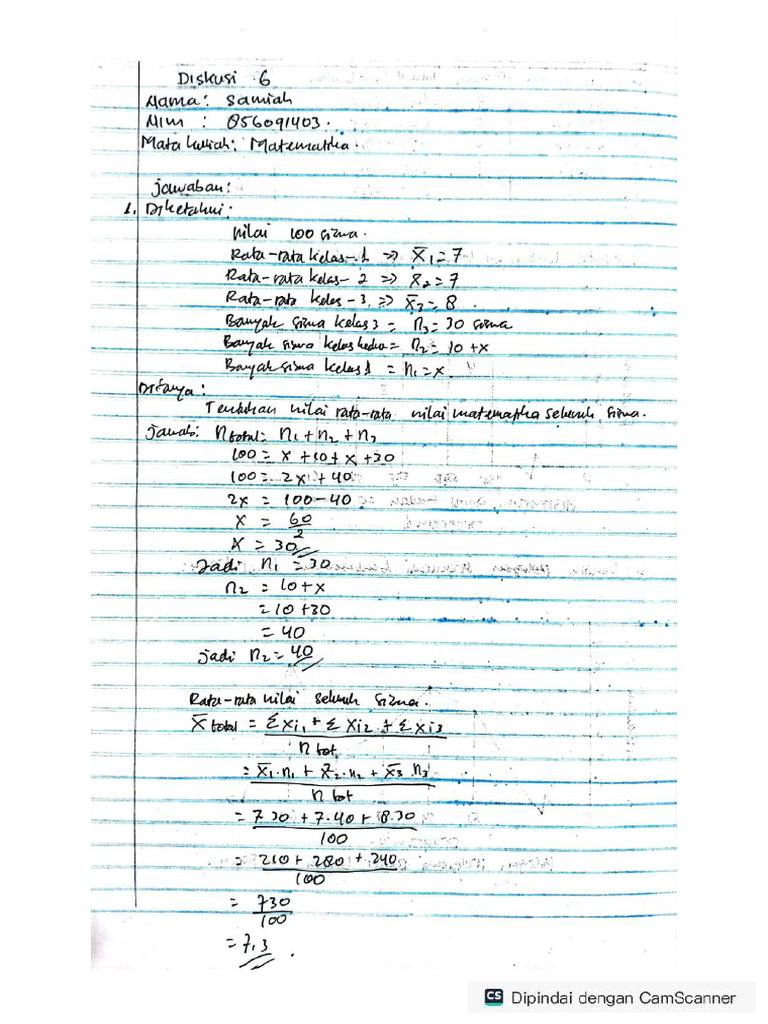 Diskusi 6
Nama: Samiah
NIM : 856091403.
Mata kuliah: Matematika.
Jawaban:
1. Diketahui:
Nilai 100 siswa.
Rata-rata kelas-1 => X̄1=7
Rata-rata kelas-2 => X̄2=7
Rata-rata kelas-3 => X̄3=8
Banyak siswa kelas 3 = n3=30 siswa
Banyak siswa kelas kedua = n2=10+x
Banyak siswa kelas 1 = n1=x
Ditanya:
Tentukan nilai rata-rata nilai matematika seluruh siswa.
Jawab: n total= n1+n2+n3
100= x+10+x+30
100= 2x+40
2x = 100-40
x = 60/2
x = 30
Jadi n1 = 30
n2 = 10+x
= 10+30
= 40
Jadi n2=40
Rata-rata nilai seluruh siswa.
X̄ total = Σxi1 + Σxi2 + Σxi3
n tot
= X̄1.n1 + X̄2.n2 + X̄3.n3
n tot
= 7.30 + 7.40 + 8.30
100
= 210 + 280 + 240
100
= 730
100
= 7,3.
CS Dipindai dengan CamScanner